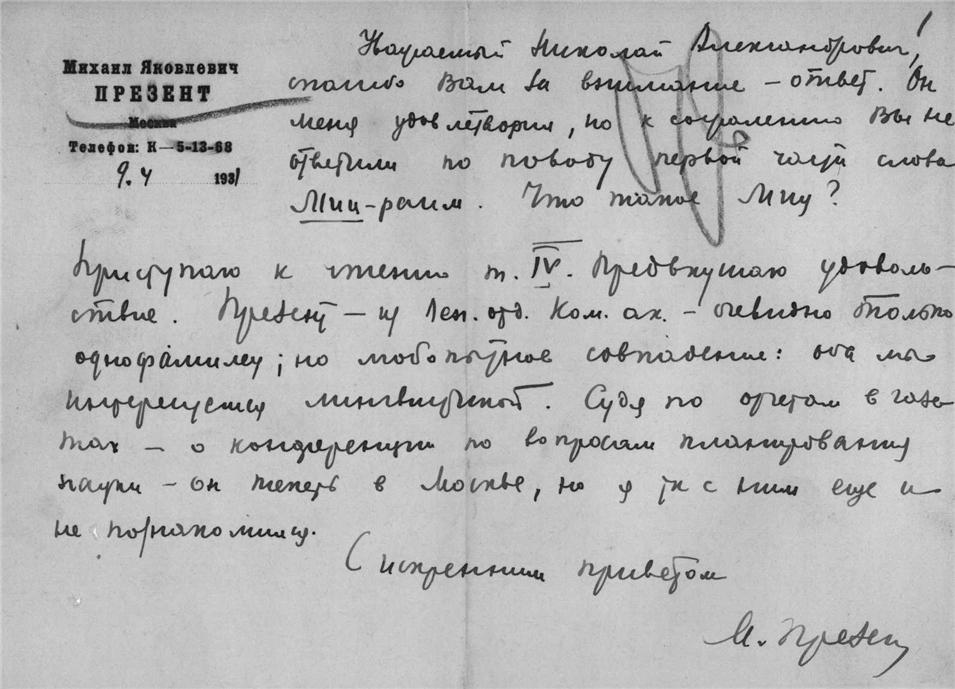 Михаил Яковлевич
ПРЕЗЕНТ
Москва
Телефон: К—5-13-68
9.4 1931
Уважаемый Николай Александрович!
спасибо Вам за внимание – ответ. Он
меня удовлетворил, но к сожалению Вы не
ответили по поводу первой части слова
Миц-раим. Что такое Миц?
Приступаю к чтению т. IV. Предвкушаю удоволь-
ствие. Презент – из Лен. отд. Ком. ак. – очевидно только
однофамилец; но любопытное совпадение: оба мы
интересуемся лингвистикой. Судя по отчетам в газе-
тах – о конференции по вопросам планирования
науки – он теперь в Москве, но я так с ним еще и
не познакомился.
С искренним приветом
М. Презент